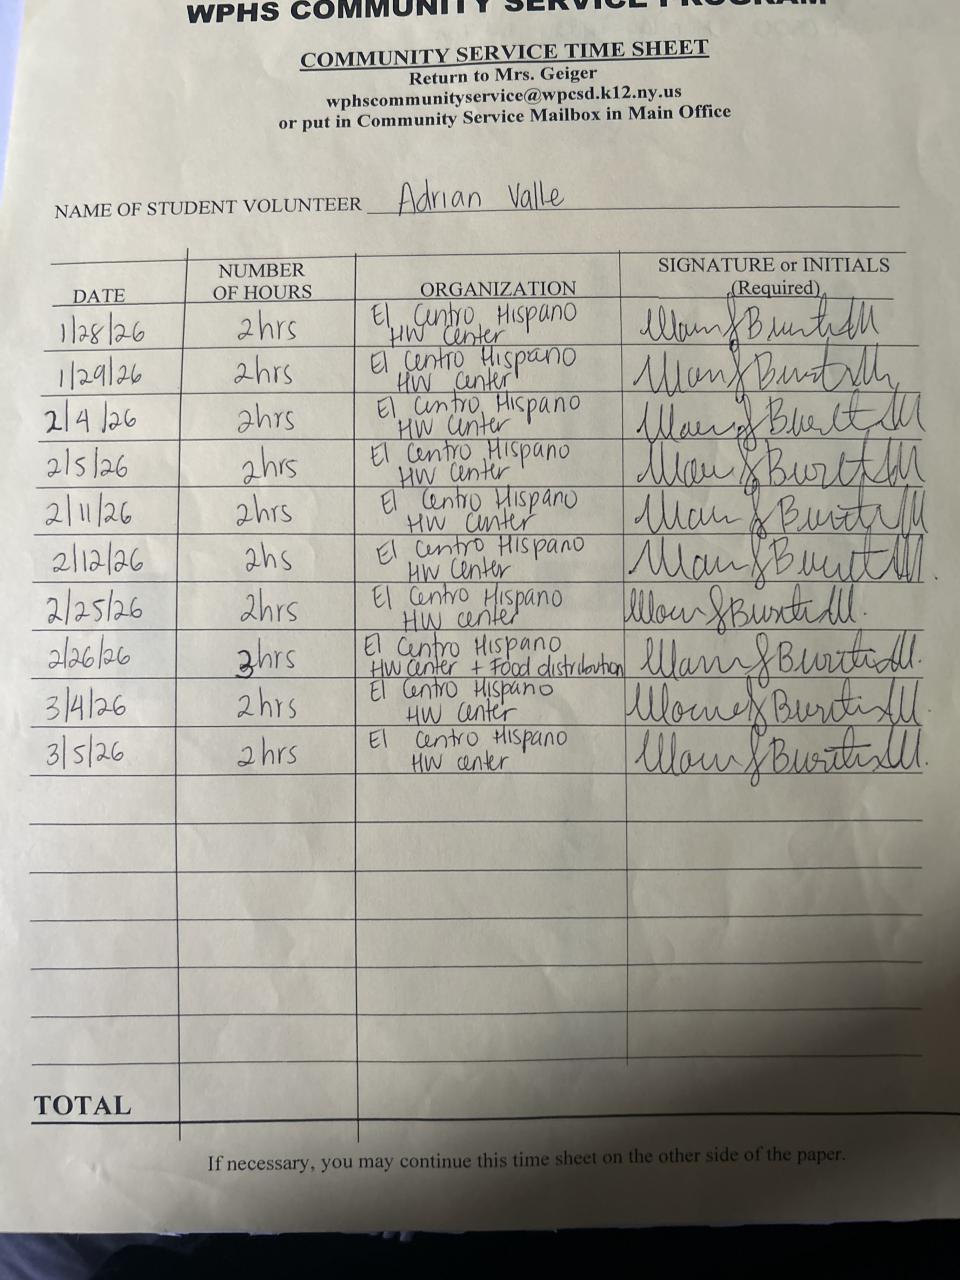 WPHS COMMUNITY SERVICE PROGRAM
COMMUNITY SERVICE TIME SHEET
Return to Mrs. Geiger
wphscommunityservice@wpcsd.k12.ny.us
or put in Community Service Mailbox in Main Office
NAME OF STUDENT VOLUNTEER Adrian Valle
DATE NUMBER OF HOURS ORGANIZATION SIGNATURE or INITIALS (Required)
1/28/26 2hrs El Centro Hispano
HW Center
1/29/26 2hrs El Centro Hispano
HW Center
2/4/26 2hrs El Centro Hispano
HW Center
2/5/26 2hrs El Centro Hispano
HW Center
2/11/26 2hrs El Centro Hispano
HW Center
2/12/26 2hs El Centro Hispano
HW Center
2/25/26 2hrs El Centro Hispano
HW center
2/26/26 3hrs El Centro Hispano
HW Center + Food distribution
3/4/26 2hrs El Centro Hispano
HW Center
3/5/26 2hrs El Centro Hispano
HW center
TOTAL
If necessary, you may continue this time sheet on the other side of the paper.